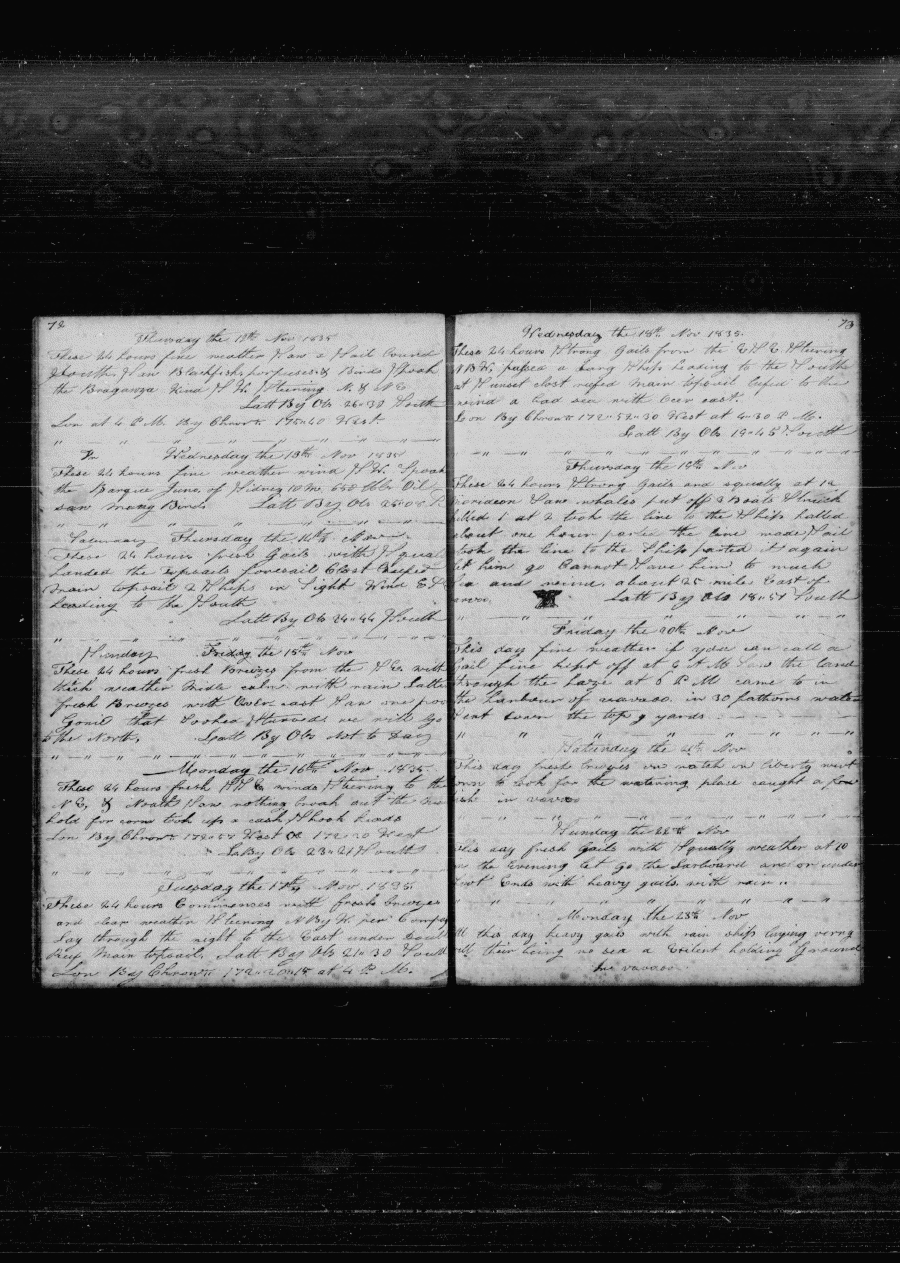 72
Thursday the 12th Nov 1835
These 24 hours fine weather Saw a Sail Coured
South Saw Blackfish porpuses & Birds Spook
the Braganza Wind S W. Stering N. & N E
Latt By Obs 26=38 South
Lon at 4 P. M. By Chrontr 175=40 West
Wednesday the 13th Nov 1835
These 24 hours fine weather wind S W. Spook
the Barque June of Sidney 10 Mo 650 bbls Oil
saw many Birds Latt By Obs
Thursday the 14th Nov
These 24 hours fresh Gails with Squal
handed the topsails foresail Close Reefed
Main topsail 2 Ships in Sight Wind E S
heading to the South
Latt By Obs 24=44 South
Sunday Friday the 15th Nov
These 24 hours fresh Brezes from the S E. with
thick weather Midle calm with rain Latter
fresh Brezes with Over cast Saw one poor
Gonil that looked Starved we will go
to the North, Latt By Obs Not to Day
Monday the 16th Nov 1835
These 24 hours fresh winds Stering to the
N E, & North Saw nothing broak out the
hold for corn took up a cask Shook heads
Lon By Chrontr West 172=30 West
La By Ob 23=21 South
Tuesday the 17th Nov 1835
These 24 hours Commences with fresh brezes
and clear weather Stering N By W. per Compas
Lay through the night to the East under
Reef Main topsail, Latt By Obs 21=30 South
Lon By Chrontr 172=20=15 at 4 P. M.
73
Wednesday the 18th Nov 1835.
These 24 hours Strong Gails from the E S E Stering
N B W. passed a Ship heading to the South
at Sunset close reefed main topsail lufed to the
wind a bad sea with Over cast.
Lon By Chrontr 172=52=30 West at 4=30 P. M.
Latt By Obs 19=45 South
Thursday the 19th Nov
These 24 hours Strong Gails and squally at 12
Saw whales put off 3 Boats Struck
killed 1 at 2 took the line to the Ship halled
about one hour parted the line made Sail
took the line to the Ship parted it again
let him go Cannot Save him to much
sea and wind. about 25 miles East of
Latt By Obs 18=51 South
Friday the 20th Nov
This day fine weather if you can call a
Gail fine kept off at 6 A M Saw the land
through the haze at 5 P M came to in
the harbour of vavaoo. in 30 fathoms water
sent down the top g yards
Saturday the 21st Nov
This day fresh brezes one watch on liberty went
down to look for the watering place caught a few
fish in vavao
Sunday the 22nd Nov
This day fresh Gails with Squally weather at 10
in the Evening let go the Larboard ancor under
foot Ends with heavy gails with rain
Monday the 23rd Nov
All this day heavy gails with rain ships laying verry
well their being no sea a Exelent holding Ground
in vavaoo